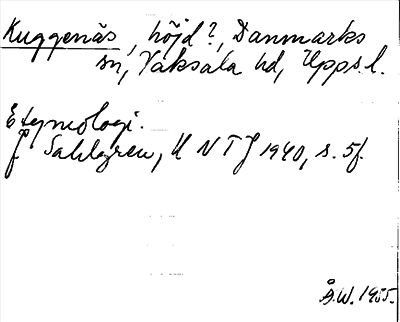 Kuggenäs, höjd?, Danmarks
sn, Vaksala hd, Upps.l.
Etymologi.
J Sahlgren, i NTJ 1940, s. 5f.
Å.W. 1955.